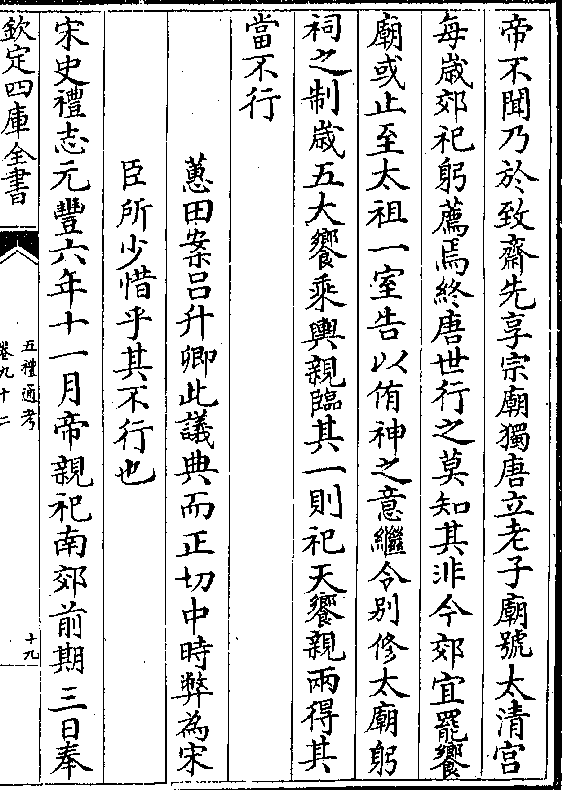 帝不聞乃於致齋先享宗廟獨唐立老子廟號太清宫
每歲郊祀躬薦焉終唐世行之莫知其非今郊宜罷饗
廟或止至太祖一室告以侑神之意繼令别修太廟躬
祠之制歲五大饗乘輿親臨其一則祀天饗親兩得其
當不行
蕙田案吕升卿此議典而正切中時弊為宋
臣所少惜乎其不行也
宋史禮志元豐六年十一月帝親祀南郊前期三日奉
欽定四庫全書
五禮通考
卷九十二
十九